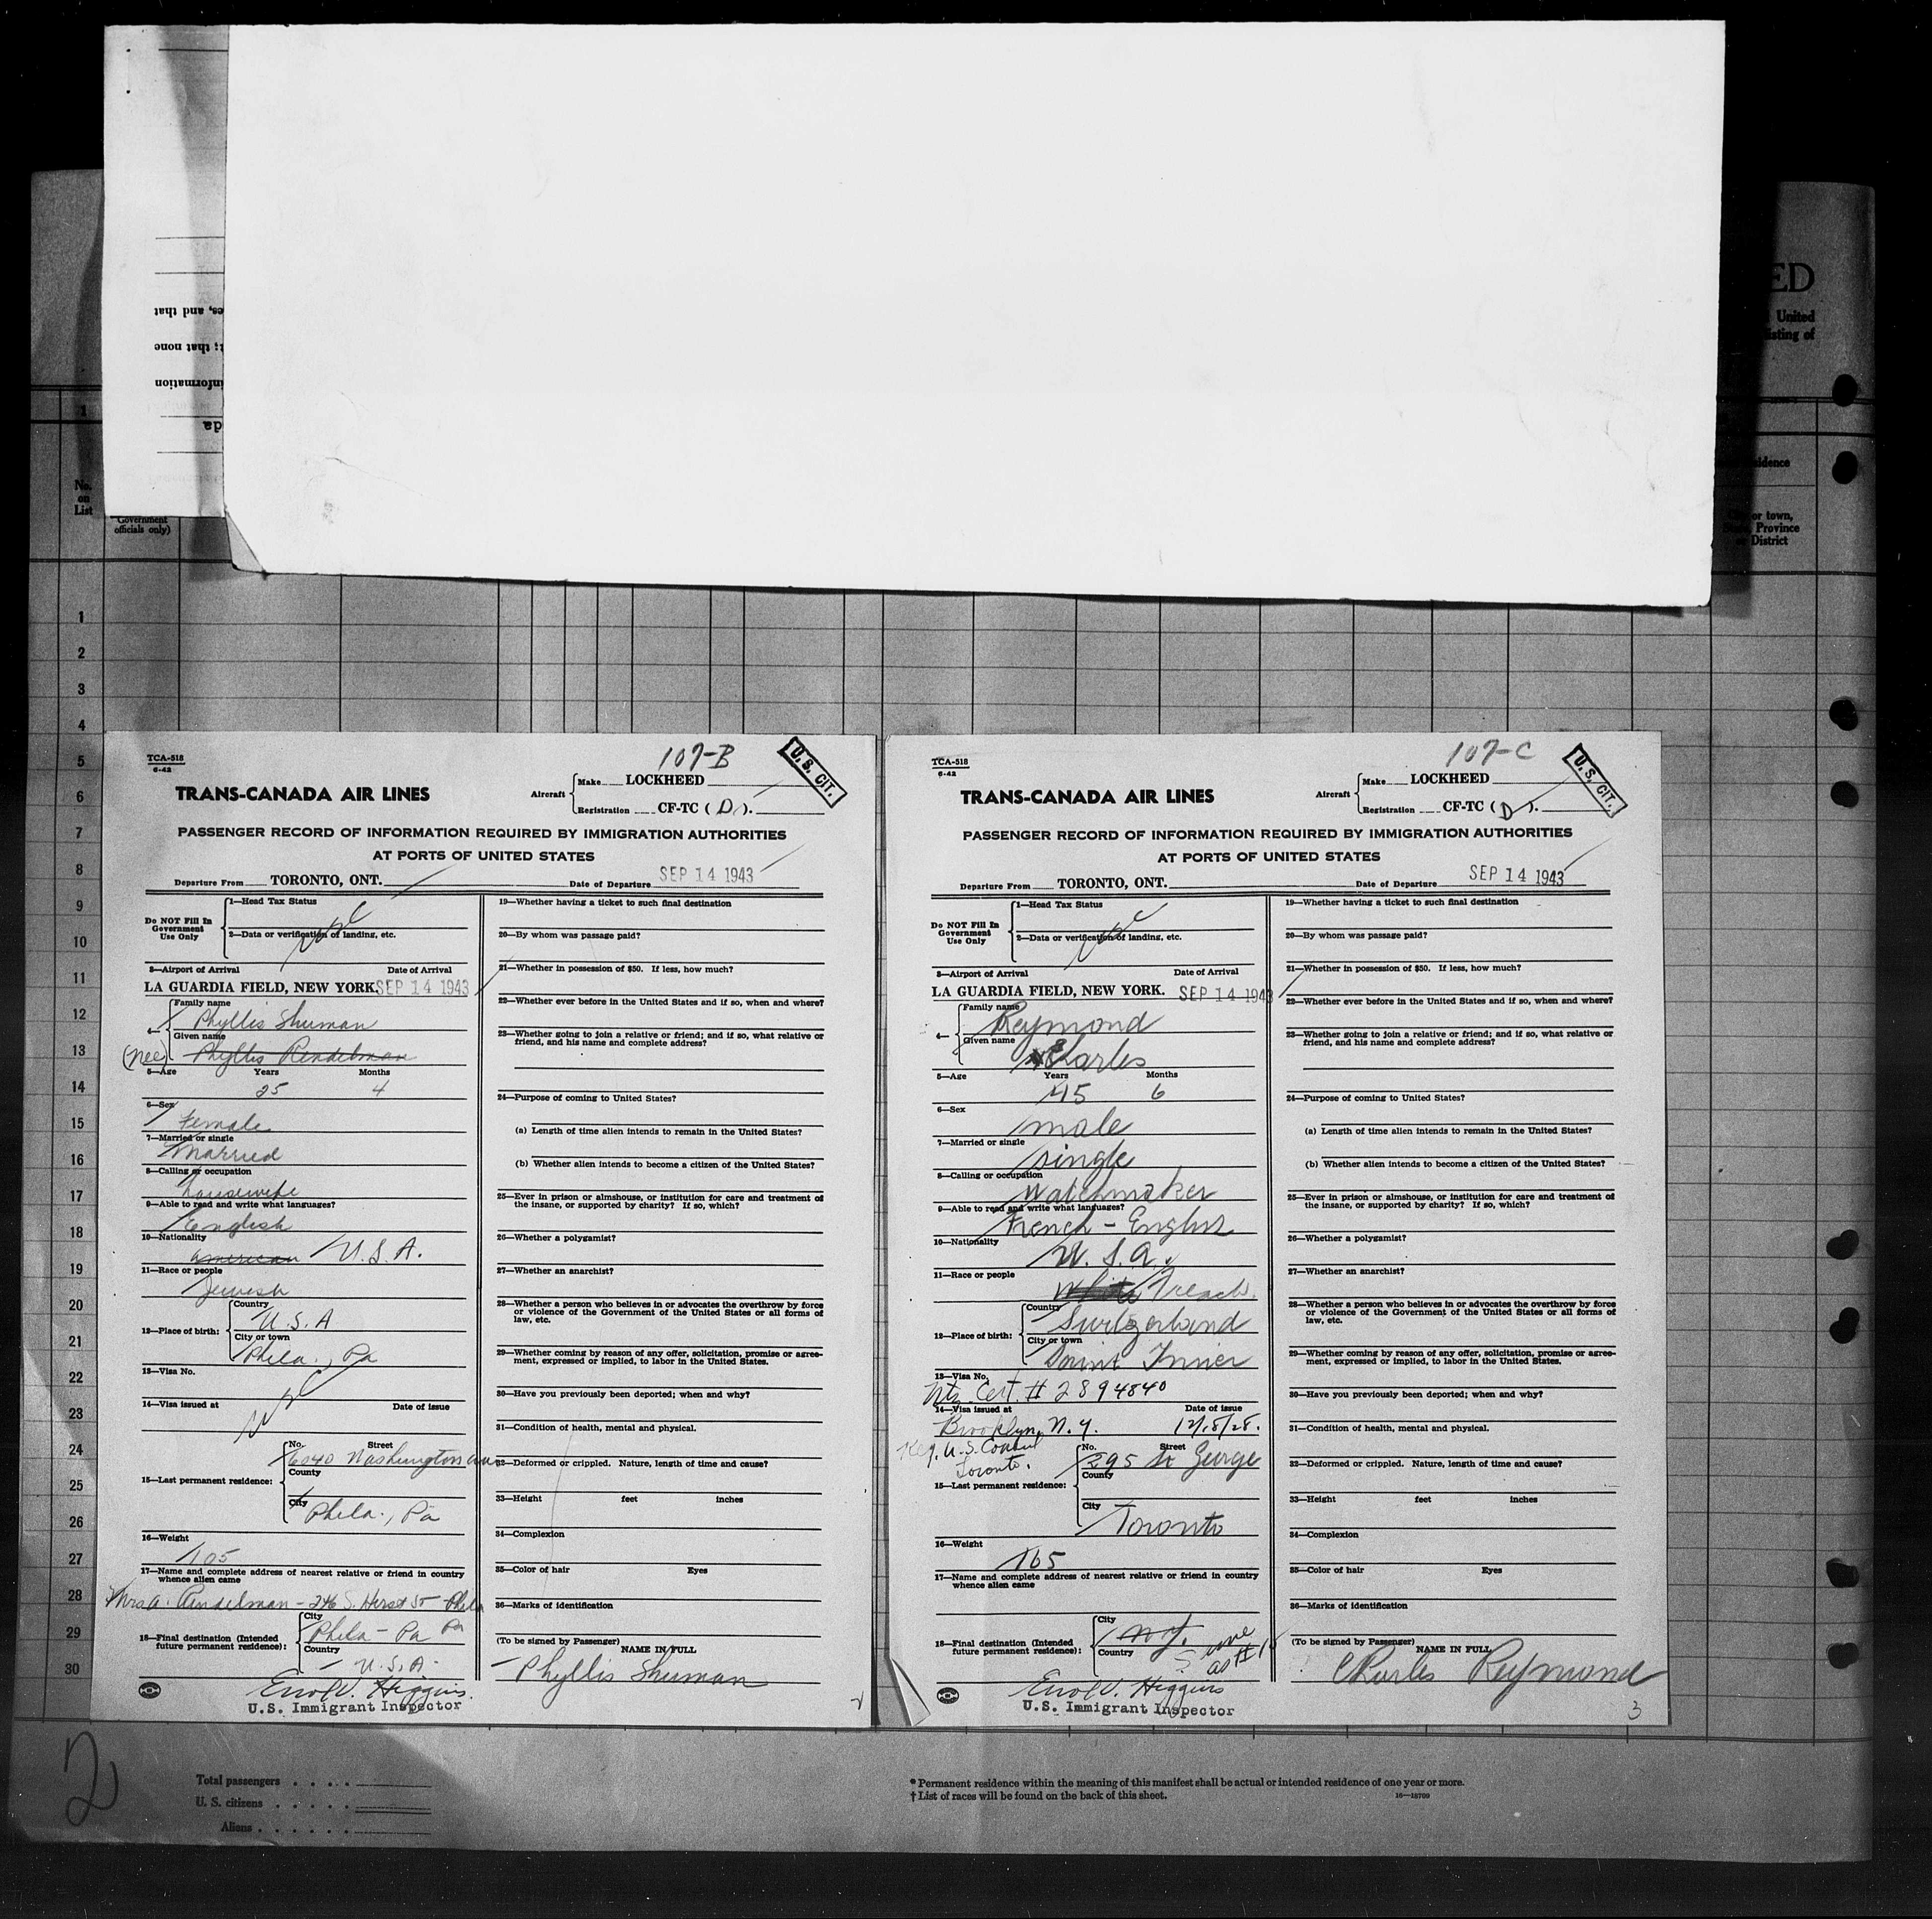 es, and that
t; that none
information
da
ED
United
isting of
1
No.
on
List
Government
officials only)
sidence
City or town,
State, Province
or District
1
2
3
4
5
6
7
8
9
10
11
12
13
14
15
16
17
18
19
20
21
22
23
24
25
26
27
28
29
30
TCA-518
6-42
107-B
U.S. CIT.
TRANS-CANADA AIR LINES
Aircraft
Make LOCKHEED
Registration CF-TC ( D ).
PASSENGER RECORD OF INFORMATION REQUIRED BY IMMIGRATION AUTHORITIES
AT PORTS OF UNITED STATES
Departure From TORONTO, ONT.
Date of Departure SEP 14 1943
Do NOT Fill In
Government
Use Only
1—Head Tax Status
2—Data or verification of landing, etc.
3—Airport of Arrival Date of Arrival
LA GUARDIA FIELD, NEW YORK. SEP 14 1943
4— Family name
Phyllis Shuman
Given name
(Nee) Phyllis Rendelman
5—Age Years Months
25 4
6—Sex
Female
7—Married or single
Married
8—Calling or occupation
housewife
9—Able to read and write what languages?
English
10—Nationality
American U.S.A.
11—Race or people
Jewish
12—Place of birth:
Country
U.S.A
City or town
Phila., Pa
13—Visa No.
14—Visa issued at Date of issue
15—Last permanent residence:
No. Street
6040 Washington ave
County
City
Phila., Pa
16—Weight
105
17—Name and complete address of nearest relative or friend in country
whence alien came
Mrs A. Rendelman - 246 S. Hirst St Phila
Pa
18—Final destination (Intended
future permanent residence):
City
Phila - Pa
Country
U.S.A.
Errol V. Higgins.
U.S. Immigrant Inspector
19—Whether having a ticket to such final destination
20—By whom was passage paid?
21—Whether in possession of $50. If less, how much?
22—Whether ever before in the United States and if so, when and where?
23—Whether going to join a relative or friend; and if so, what relative or
friend, and his name and complete address?
24—Purpose of coming to United States?
(a) Length of time alien intends to remain in the United States?
(b) Whether alien intends to become a citizen of the United States?
25—Ever in prison or almshouse, or institution for care and treatment of
the insane, or supported by charity? If so, which?
26—Whether a polygamist?
27—Whether an anarchist?
28—Whether a person who believes in or advocates the overthrow by force
or violence of the Government of the United States or all forms of
law, etc.
29—Whether coming by reason of any offer, solicitation, promise or agree-
ment, expressed or implied, to labor in the United States.
30—Have you previously been deported; when and why?
31—Condition of health, mental and physical.
32—Deformed or crippled. Nature, length of time and cause?
33—Height feet inches
34—Complexion
35—Color of hair Eyes
36—Marks of identification
(To be signed by Passenger) NAME IN FULL
Phyllis Shuman
2
TCA-518
6-42
107-C
U.S. CIT.
TRANS-CANADA AIR LINES
Aircraft
Make LOCKHEED
Registration CF-TC ( D ).
PASSENGER RECORD OF INFORMATION REQUIRED BY IMMIGRATION AUTHORITIES
AT PORTS OF UNITED STATES
Departure From TORONTO, ONT.
Date of Departure SEP 14 1943
Do NOT Fill In
Government
Use Only
1—Head Tax Status
2—Data or verification of landing, etc.
3—Airport of Arrival Date of Arrival
LA GUARDIA FIELD, NEW YORK. SEP 14 1943
4— Family name
Reymond
Given name
Charles
5—Age Years Months
45 6
6—Sex
male
7—Married or single
single
8—Calling or occupation
Watchmaker
9—Able to read and write what languages?
French - English
10—Nationality
U.S.A.
11—Race or people
White French
12—Place of birth:
Country
Switzerland
City or town
Saint Imier
13—Visa No.
Ntz. Cert. # 2894840
14—Visa issued at Date of issue
Brooklyn, N.Y. 12/18/28.
Reg. U.S. Consul
Toronto.
15—Last permanent residence:
No. Street
295 St George
County
City
Toronto
16—Weight
165
17—Name and complete address of nearest relative or friend in country
whence alien came
18—Final destination (Intended
future permanent residence):
City
N.Y.
Country
Same
as # 15
Errol V. Higgins
U.S. Immigrant Inspector
19—Whether having a ticket to such final destination
20—By whom was passage paid?
21—Whether in possession of $50. If less, how much?
22—Whether ever before in the United States and if so, when and where?
23—Whether going to join a relative or friend; and if so, what relative or
friend, and his name and complete address?
24—Purpose of coming to United States?
(a) Length of time alien intends to remain in the United States?
(b) Whether alien intends to become a citizen of the United States?
25—Ever in prison or almshouse, or institution for care and treatment of
the insane, or supported by charity? If so, which?
26—Whether a polygamist?
27—Whether an anarchist?
28—Whether a person who believes in or advocates the overthrow by force
or violence of the Government of the United States or all forms of
law, etc.
29—Whether coming by reason of any offer, solicitation, promise or agree-
ment, expressed or implied, to labor in the United States.
30—Have you previously been deported; when and why?
31—Condition of health, mental and physical.
32—Deformed or crippled. Nature, length of time and cause?
33—Height feet inches
34—Complexion
35—Color of hair Eyes
36—Marks of identification
(To be signed by Passenger) NAME IN FULL
Charles Reymond
3
2
Total passengers . . . .
U. S. citizens . . . . .
Aliens . . . . . .
* Permanent residence within the meaning of this manifest shall be actual or intended residence of one year or more.
† List of races will be found on the back of this sheet.
16—18709